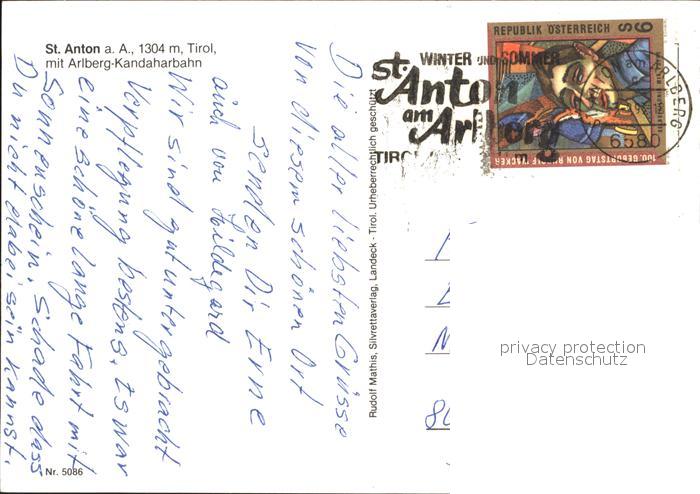 St. Anton a. A., 1304 m, Tirol,
mit Arlberg-Kandaharbahn
Die aller liebsten Grüsse
von diesem schönen Ort
senden Dir Erne
auch von Hildegard
Wir sind gut untergebracht
Verpflegung bestens, Es war
eine schöne lange Fahrt mit
Sonnenschein. Schade dass
Du nicht dabei sein kannst.
Nr. 5086
Rudolf Mathis, Silvrettaverlag, Landeck - Tirol. Urheberrechtlich geschützt
WINTER UND SOMMER
St. Anton
am Arlberg
TIROL
REPUBLIK ÖSTERREICH S 6
100. GEBURTSTAG VON RUDOLF WACKER
ARLBERG
6580
80
privacy protection
Datenschutz